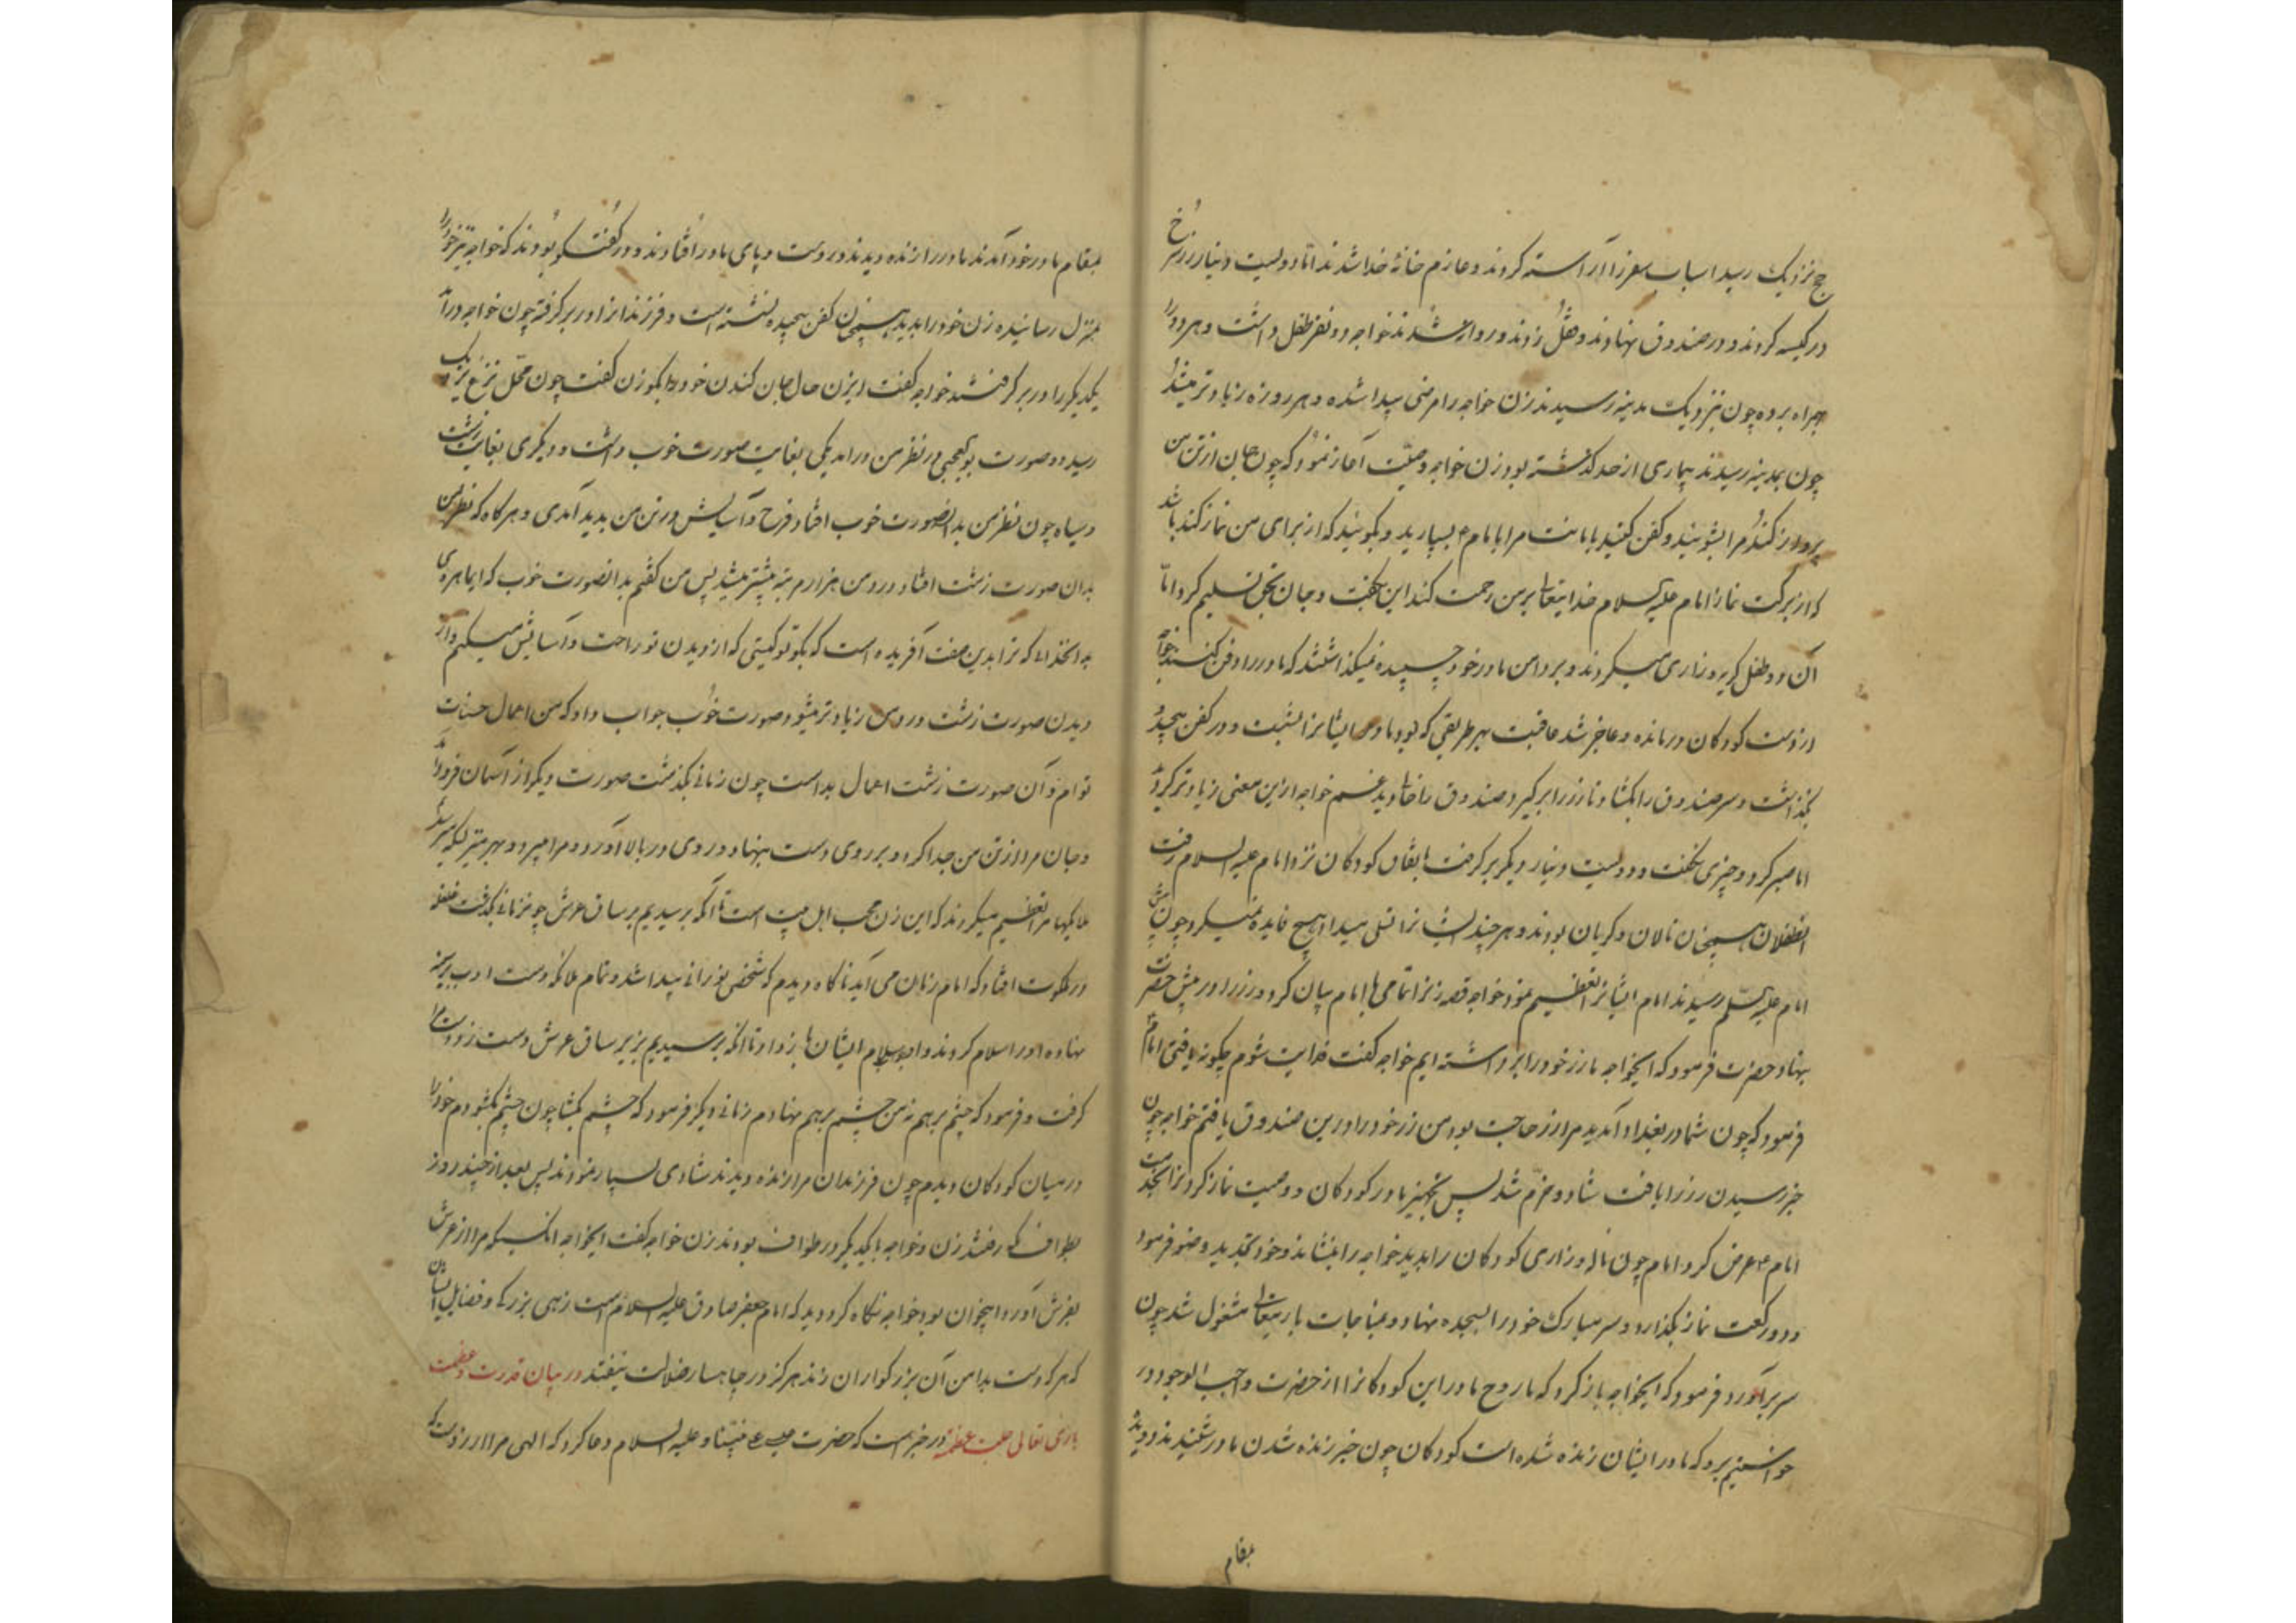 حج نزدیک رسید اسباب سفر را آراسته کردند و عازم خانهٔ خدا شدند اما دویست دینار زر سرخ
در کیسه کردند و در صندوق نهادند و قفل زدند و روانه شدند خواجه دو نفر طفل داشت و هر دو را
همراه برده چون بنزدیک مدینه رسیدند زن خواجه را مرضی پیدا شده و هر روزه زیادتر میشد
چون بمدینه رسیدند بیماری از حد گذشته بود زن خواجه وصیّت آغاز نمود که چون جان از تن من
پرواز کند مرا بشوئید و کفن کنید بامانت مرا بامام ع بسپارید و بگوئید که از برای من نماز کند باشد
که از برکت نماز امام علیه السلام خدایتعالی بر من رحمت کند این بگفت و جان بحق تسلیم کرد اما
آن دو طفل گریه و زاری میکردند و بر دامن مادر خود چسپیده نمیگذاشتند که مادر را دفن کنند خواجه
از دست کودکان درمانده و عاجز شد عاقبت بهر طریقی که بود مادر ایشانرا بشست و در کفن پیچید
بگذاشت و سر صندوق را بگشاد تا زر را برگیرد صندوق را خالی دید غم خواجه ازین معنی زیادتر گردید
اما صبر کرد و چیزی نگفت و دویست دینار دیگر برگرفت باتفاق کودکان نزد امام علیه السلام رفت
آنطفلان همچنان نالان و گریان بودند و هر چند ایشانرا تسلی میداد هیچ فایده نمیکرد چون پیش
امام علیه السلام رسیدند امام ایشانرا تعظیم نمود خواجه قصه زنرا تمامی با امام بیان کرد و زر را در پیش حضرت
بنهاد حضرت فرمود که ایخواجه ما زر خود را برداشته ایم خواجه گفت فدایت شوم چگونه یافتی امام
فرمود که چون شما در بغداد آمدید مرا زر حاجت بود من زر خود را درین صندوق یافتم خواجه چون
خبر رسیدن زر را یافت شاد و خرّم شد پس تجهیز مادر کودکان و وصیت نماز کردنرا بخدمت
امام ع عرض کرد امام چون ناله و زاری کودکان را بدید خواجه را بنشاند و خود تجدید وضو فرمود
و دو رکعت نماز بگذارد و سر مبارک خود را بسجده نهاد و بمناجات باریتعالی مشغول شد چون
سر برآورد فرمود که ایخواجه باز گرد که ما روح مادر این کودکانرا از حضرت واجب الوجود در
خواستیم برو که مادر ایشان زنده شده است کودکان چون خبر زنده شدن مادر شنیدند دویدند
بمقام
بمقام مادر خود آمدند مادر را زنده دیدند در دست و پای مادر افتادند و در گفتگو بودند که خواجه نیز خود را
بمنزل رسانیده زن خود را بدید همچنان کفن پیچیده نشسته است و فرزندانرا در بر گرفته چون خواجه درآمد
یکدیگر را در بر گرفتند خواجه گفت ایزن حال جان کندن خود را بگو زن گفت چون محل نزع نزدیک
رسید دو صورت بوالعجبی در نظر من درامد یکی بغایت صورت خوب داشت و دیگری بغایت زشت
و سیاه چون نظر من بدانصورت خوب افتاد فرح و آسایش در تن من پدید آمدی و هر گاه که نظر من
بدان صورت زشت افتاد درد من هزار مرتبه بیشتر میشد پس من گفتم بدانصورت خوب که ایماهروی
بدانخدای که ترا بدین صفت آفریده است که بگو تو کیستی که از دیدن تو راحت و آسایش میکنم و از
دیدن صورت زشت درد من زیادتر میشود صورت خوب جواب داد که من اعمال حسنات
توام و آن صورت زشت اعمال بد است چون زمانی بگذشت صورت دیگر از آسمان فرود آمد
و جان مرا از تن من جدا کرد و بر روی دست بنهاد و روی در بالا آورد و مرا میبرد و بهر منزلیکه میرسید
ملایکها مرا تعظیم میکردند که این زن محب اهل بیت است تا آنکه برسیدیم بر ساق عرش چون زمانی بگذشت غلغله
در ملکوت افتاد که امام زمان می آید ناگاه دیدم که شخص نورانی پیدا شد و تمام ملائکه دست ادب بر سینه
نهاده او را سلام کردند و او جواب سلام ایشان باز داد تا آنکه برسیدیم بزیر ساق عرش دست زد و دست مرا
گرفت و فرمود که چشم بر هم نه من چشم بر هم نهادم زمانی دیگر فرمود که چشم بگشا چون چشم بگشودم خود را
در میان کودکان دیدم چون فرزندان مرا زنده دیدند شادی بسیار نمودند پس بعد از چند روز
بطواف مکه رفتند زن و خواجه با یکدیگر در طواف بودند زن خواجه گفت ایخواجه انکسیکه مرا از عرش
بفرش آورد اینجوان بود خواجه نگاه کرد دید که امام جعفر صادق علیه السلام است زهی بزرگی و فضایل ایشان
که هر که دست بدامن آن بزرگواران زند هرگز در چاهسار ضلالت نیفتد در بیان قدرت و عظمت
باری تعالی جلت عظمته در خبر است که حضرت عیسی علی نبینا و علیه السلام دعا کرد که الهی مرا از دوست